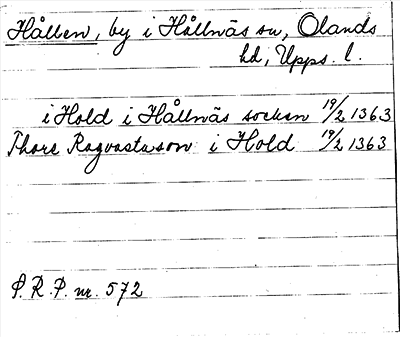 Hållen, by i Hållnäs sn, Olands
hd, Upps. l.
i Hold i Hållnäs socken 19/2 1363
Thore Ragvastason i Hold 19/2 1363
P. R. P. nr. 572